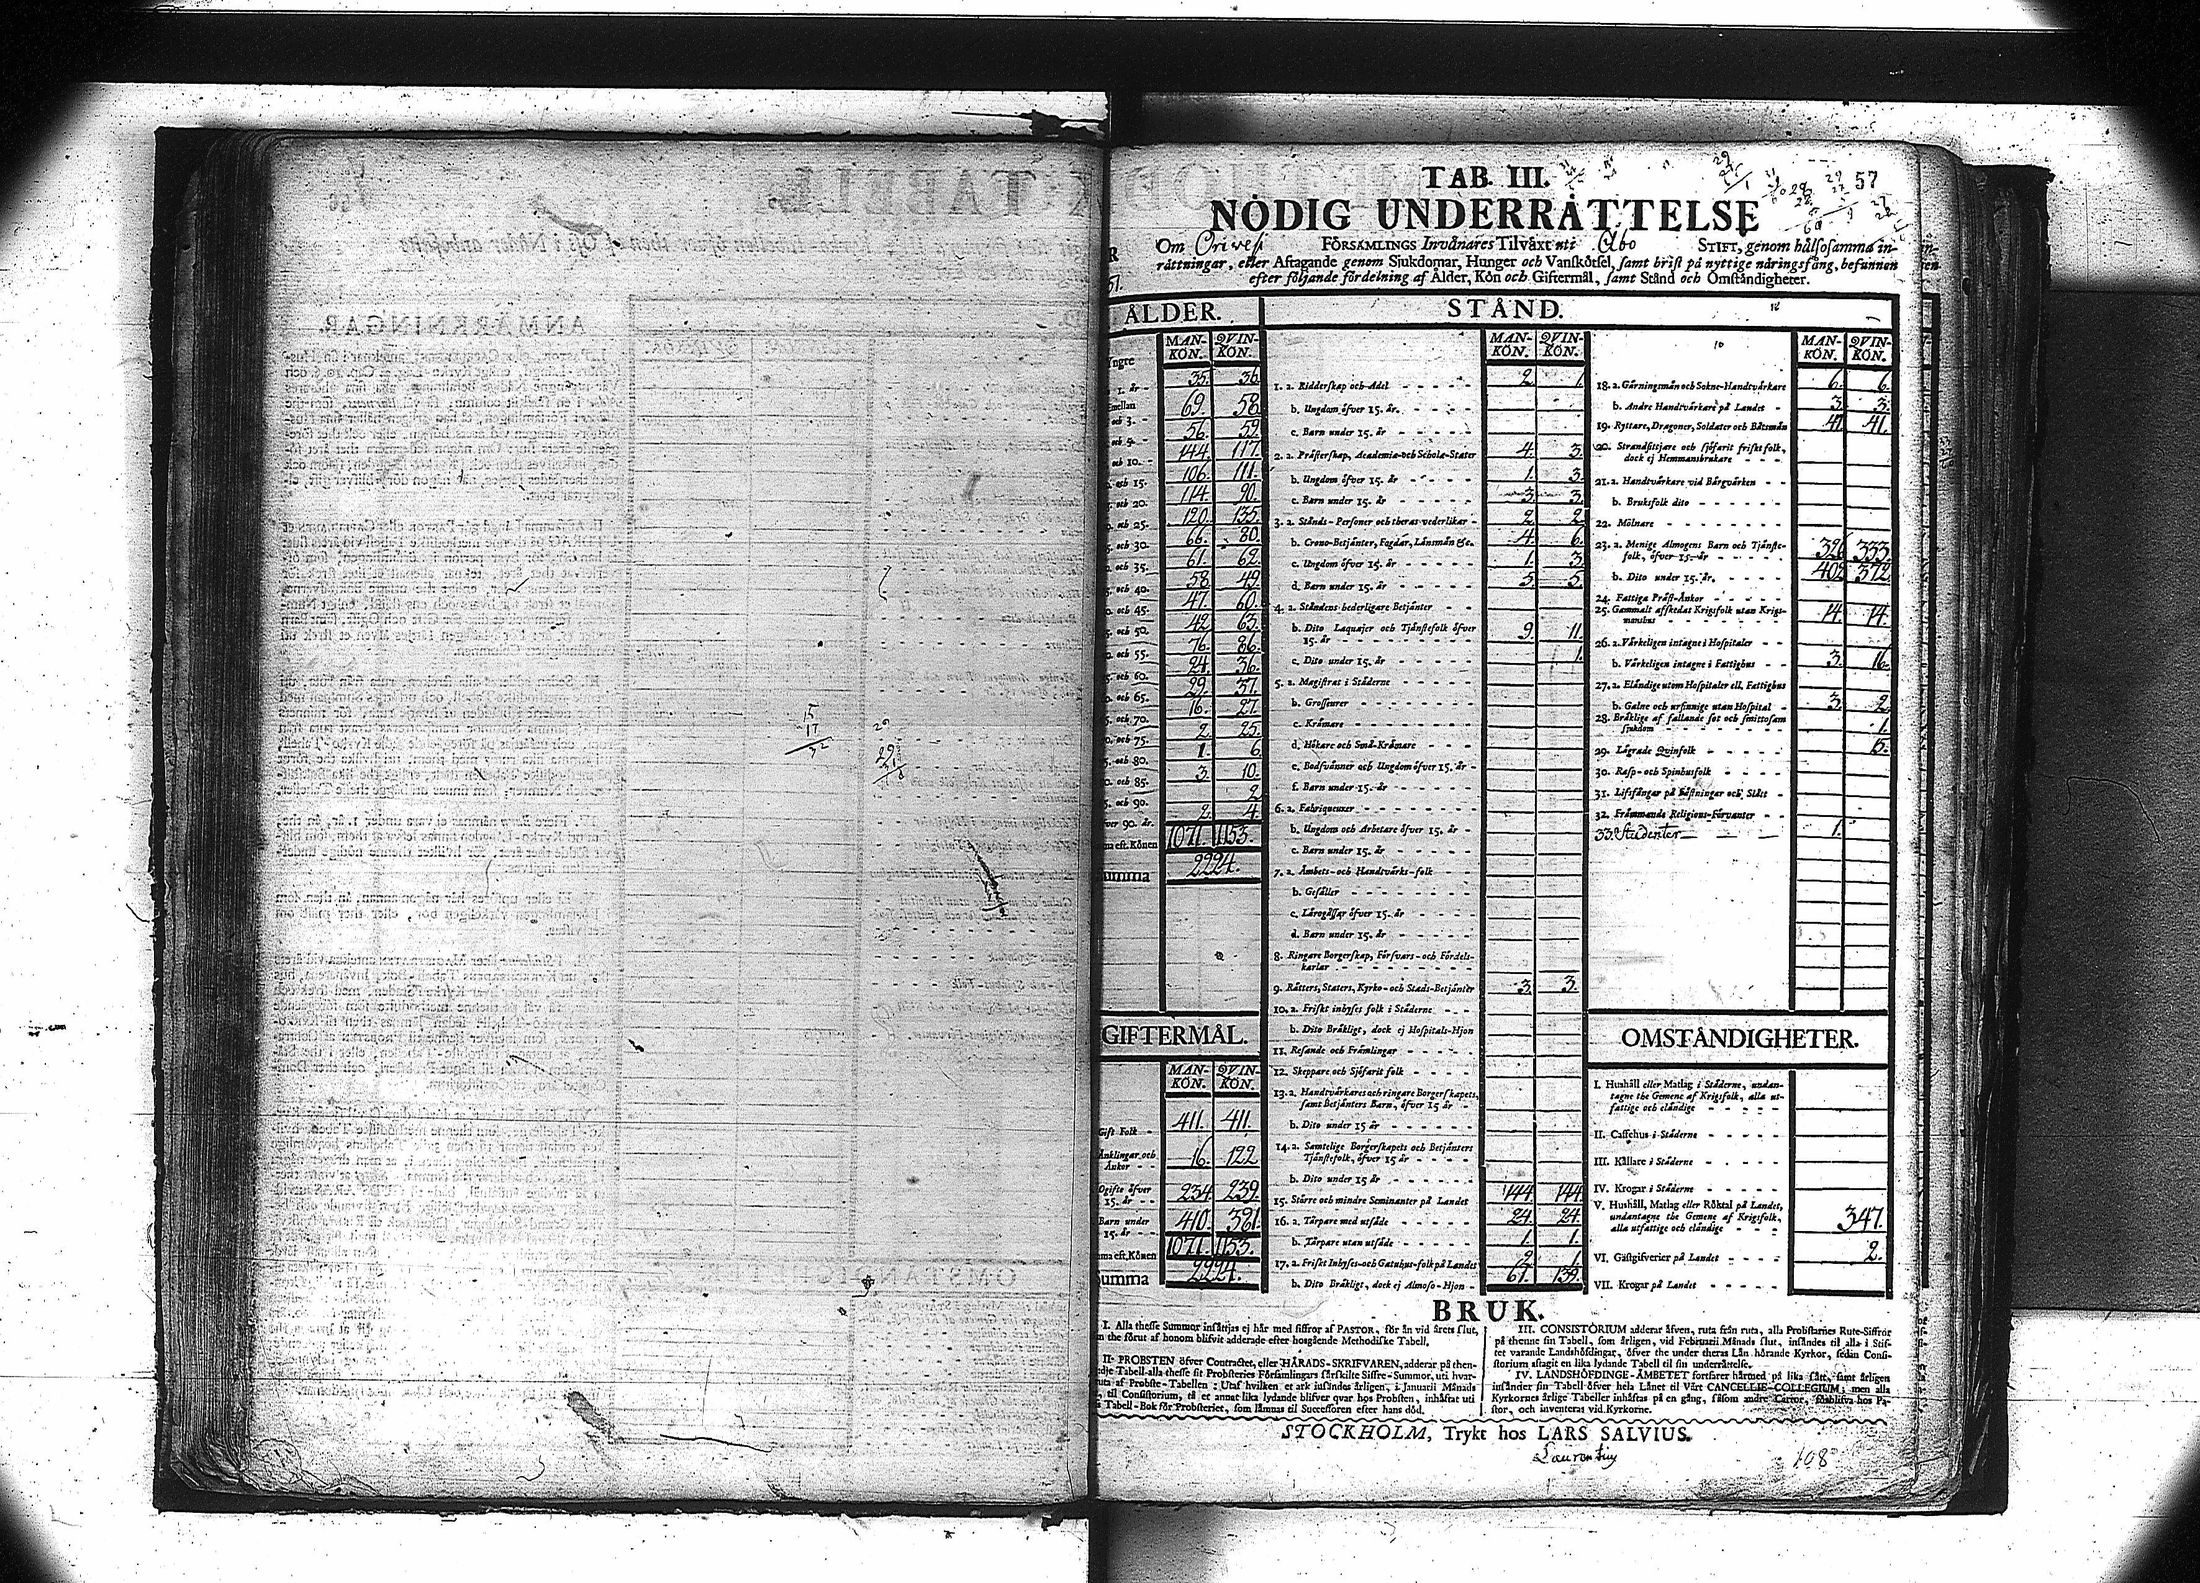 TAB. III.
57
NÖDIG UNDERRÅTTELSE
Om Orivesi FÖRSAMLINGS Invånares Tilväxt uti Åbo STIFT, genom hälsosamma in-
rättningar, eller Aftagande genom Sjukdomar, Hunger och Vanskötsel, samt brist på nyttige näringsfång, befunnen
efter följande fördelning af Ålder, Kön och Giftermål, samt Stånd och Omständigheter.
ÅLDER.
MAN-KÖN. QVIN-KÖN.
Yngre
1. år - 35. 36.
Emellan 69. 58.
och 3. - 56. 59.
och 5. - 144. 117.
och 10. - 106. 111.
och 15. 114. 90.
och 20. 120. 135.
och 25. 66. 80.
och 30. 61. 62.
och 35. 58. 49.
och 40. 47. 60.
och 45. 42. 63.
och 50. 76. 86.
och 55. 24. 36.
och 60. 29. 37.
och 65. 16. 27.
och 70. 2. 25.
och 75. 1. 6.
och 80. 3. 10.
och 85. 2.
och 90. 2. 4.
öfver 90. år.
eft. Könen 1071. 1153.
Summa 2224.
GIFTERMÅL.
MAN-KÖN. QVIN-KÖN.
Gift Folk - 411. 411.
Änklingar och
Änkor - - 16. 122
Ogifte öfver
15. år - - 234 239.
Barn under
15. år - - 410. 381.
eft. Könen 1071. 1153.
Summa 2224.
STÅND.
MAN-KÖN. QVIN-KÖN.
1. a. Ridderskap och Adel 2. 1.
b. Ungdom öfver 15. år.
c. Barn under 15. år
2. a. Prästerskap, Academiæ- och Scholæ-Stater 4. 3.
b. Ungdom öfver 15. år 1. 3.
c. Barn under 15. år 3. 3.
3. a. Stånds-Personer och theras vederlikar - 2. 2.
b. Crono-Betjänter, Fogdar, Länsmän &c. 4. 6.
c. Ungdom öfver 15. år 1. 3.
d. Barn under 15. år 5. 5.
4. a. Ståndens hederligare Betjänter
b. Dito Laquajer och Tjänstefolk öfver
15. år 9. 11.
c. Dito under 15. år 1.
5. a. Magistrat i Städerne
b. Grosseurer
c. Krämare
d. Hökare och Små-Krämare
e. Bodsvänner och Ungdom öfver 15. år -
f. Barn under 15. år
6. a. Fabriqueurer
b. Ungdom och Arbetare öfver 15. år -
c. Barn under 15. år
7. a. Ämbets- och Handtvärks-folk
b. Gesäller
c. Lärogåssar öfver 15. år
d. Barn under 15. år
8. Ringare Borgerskap, Försvars- och Fördels-
karlar
9. Rätters, Staters, Kyrko- och Stads-Betjänter 3. 3.
10. a. Friskt inhyses folk i Städerne
b. Dito Bräkligt, dock ej Hospitals-Hjon
11. Resande och Främlingar
12. Skeppare och Sjöfarit folk
13. a. Handtvärkares och ringare Borgerskapets,
samt Betjänters Barn, öfver 15 år
b. Dito under 15 år
14. a. Samtelige Borgerskapets och Betjänters
Tjänstefolk, öfver 15 år
b. Dito under 15 år
15. Större och mindre Seminanter på Landet 144 144
16. a. Tårpare med utsäde 24. 24.
b. Tårpare utan utsäde 1. 1.
17. a. Friskt Inhyses- och Gatuhus-folk på Landet 2. 1.
b. Dito Bräkligt, dock ej Almoso-Hjon - 61. 139.
MAN-KÖN. QVIN-KÖN.
18. a. Gärningsmän och Sokne-Handtvärkare 6. 6.
b. Andre Handtvärkare på Landet 3. 3.
19. Ryttare, Dragoner, Soldater och Båtsmän 41. 41.
20. Strandsittjare och sjöfarit friskt folk,
dock ej Hemmansbrukare
21. a. Handtvärkare vid Bärgvärken
b. Bruksfolk dito
22. Mölnare
23. a. Menige Almogens Barn och Tjänste-
folk, öfver 15 år 326 333.
b. Dito under 15. år. 402 372
24. Fattiga Präst-Änkor
25. Gammalt afskedat Krigsfolk utan Krigs-
manshus 14. 14.
26. a. Värkeligen intagne i Hospitaler
b. Värkeligen intagne i Fattighus 3. 16.
27. a. Eländige utom Hospitaler ell. Fattighus
b. Galne och ursinnige utan Hospital - 3. 2.
28. Bräklige af fallande sot och smittosam
sjukdom 1.
29. Lägrade Qvinfolk 15.
30. Rasp- och Spinhusfolk
31. Lifsfångar på Fästningar och Slått
32. Främmande Religions-Förvanter
33. Studenter 1.
OMSTÄNDIGHETER.
I. Hushåll eller Matlag i Städerne, undan-
tagne the Gemene af Krigsfolk, alla ut-
fattige och eländige
II. Caffehus i Städerne
III. Källare i Städerne
IV. Krogar i Städerne
V. Hushåll, Matlag eller Röktal på Landet,
undantagne the Gemene af Krigsfolk,
alla utfattige och eländige 347.
VI. Gästgifverier på Landet 2.
VII. Krogar på Landet
BRUK.
I. Alla thesse Summor insättjas ej här med siffror af PASTOR, för än vid årets slut,
the förut af honom blifvit adderade efter hosgående Methodiske Tabell.
II. PROBSTEN öfver Contractet, eller HÄRADS-SKRIFVAREN, adderar på then-
Tabell alla thesse sit Probsteries Församlingars särskilte Siffre-Summor, uti hvar-
ruta af Probste-Tabellen: Utaf hvilken et ark insändes årligen, i Januarii Månads
til Consistorium, tå et annat lika lydande blifver qvar hos Probsten, inhäftat uti
Tabell-Bok för Probsteriet, som lämnas til Successoren efter hans död.
III. CONSISTORIUM adderar äfven, ruta från ruta, alla Probstarnes Rute-Siffror
på thenne sin Tabell, som årligen, vid Februarii Månads slut, insändes til alla i Stif-
tet varande Landshöfdingar, öfver the under theras Län hörande Kyrkor, sedan Consi-
storium aftagit en lika lydande Tabell til sin underrättelse.
IV. LANDSHÖFDINGE-ÄMBETET fortfarer härmed på lika sätt, samt årligen
insänder sin Tabell öfver hela Länet til Vårt CANCELLIE-COLLEGIUM; men alla
Kyrkornes årlige Tabeller inhäftas på en gång, såsom andre Cartor, blifva hos Pa-
stor, och inventeras vid Kyrkorne.
STOCKHOLM, Tryckt hos LARS SALVIUS.
108